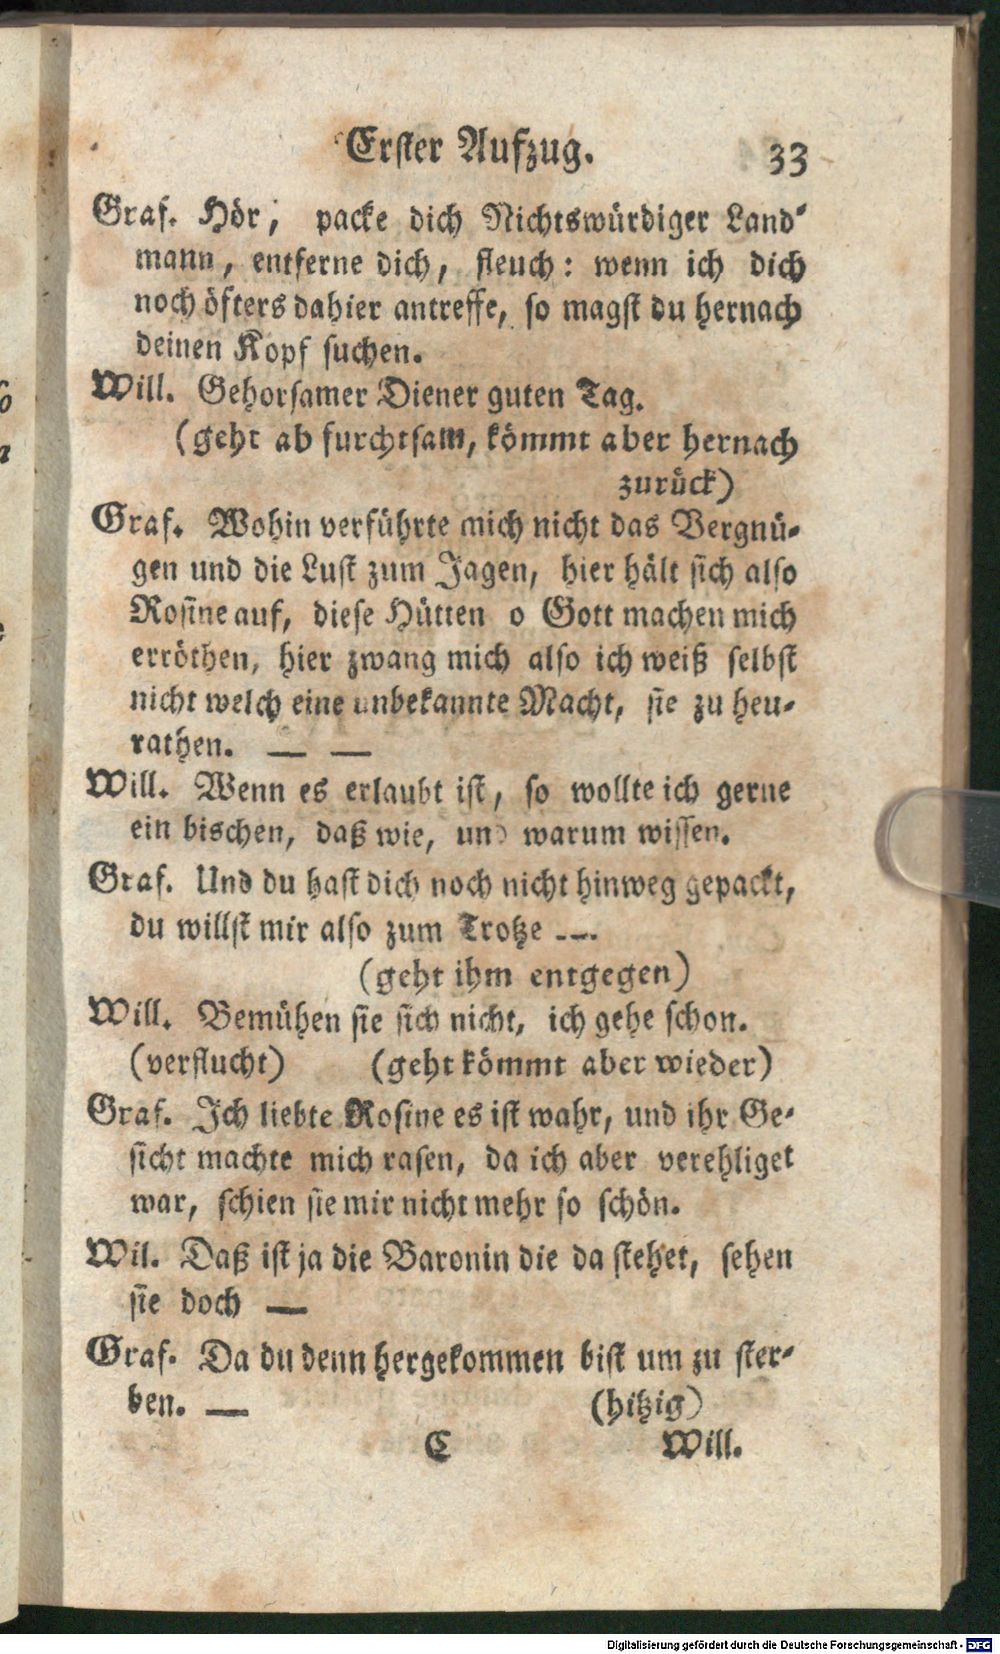 Erster Aufzug. 33
Graf. Hör, packe dich Nichtswürdiger Land-
mann, entferne dich, fleuch: wenn ich dich
noch öfters dahier antreffe, so magst du hernach
deinen Kopf suchen.
Will. Gehorsamer Diener guten Tag.
(geht ab furchtsam, kömmt aber hernach
zurück)
Graf. Wohin verführte mich nicht das Vergnü-
gen und die Lust zum Jagen, hier hält sich also
Rosine auf, diese Hütten o Gott machen mich
erröthen, hier zwang mich also ich weiß selbst
nicht welch eine unbekannte Macht, sie zu heu-
rathen. — —
Will. Wenn es erlaubt ist, so wollte ich gerne
ein bischen, daß wie, und warum wissen.
Graf. Und du hast dich noch nicht hinweg gepackt,
du willst mir also zum Trotze ---
(geht ihm entgegen)
Will. Bemühen sie sich nicht, ich gehe schon.
(verflucht) (geht kömmt aber wieder)
Graf. Ich liebte Rosine es ist wahr, und ihr Ge-
sicht machte mich rasen, da ich aber verehliget
war, schien sie mir nicht mehr so schön.
Wil. Daß ist ja die Baronin die da stehet, sehen
sie doch —
Graf. Da du denn hergekommen bist um zu ster-
ben. — (hitzig)
C Will.
Digitalisierung gefördert durch die Deutsche Forschungsgemeinschaft - DFG